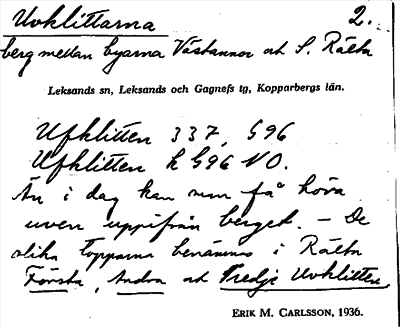 Uvklittarna 2.
berg mellan byarna Västannor och S. Rälta
Leksands sn, Leksands och Gagnefs tg, Kopparbergs län.
Ufklitten 337, G96
Ufklitten k G96 NO.
Än i dag kan man få höra
uven uppifrån berget. – De
olika topparna benämnes i Rälta
Första, Andra och Tredje Uvklitten.
ERIK M. CARLSSON, 1936.